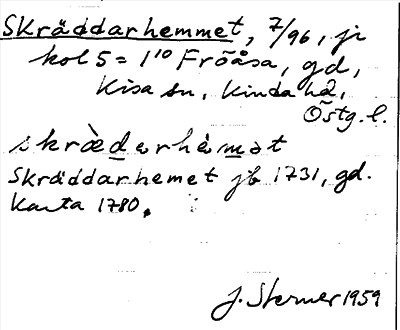 Skräddarhemmet, 7/96, ji
kol 5 = 1¹⁰ Fröåsa, gd,
Kisa sn, Kinda hd,
Östg. l.
skræ̀darhèmat
Skräddarhemet jb 1731, gd.
Karta 1780.
J. Sterner 1959